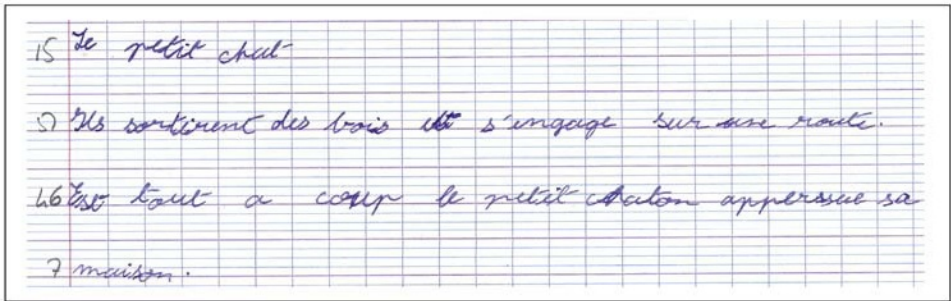 15 Le petit chat
5 Ils sortirent des bois et s'engage sur une route.
46 Est tout a coup le petit chaton appersue sa
7 maison.